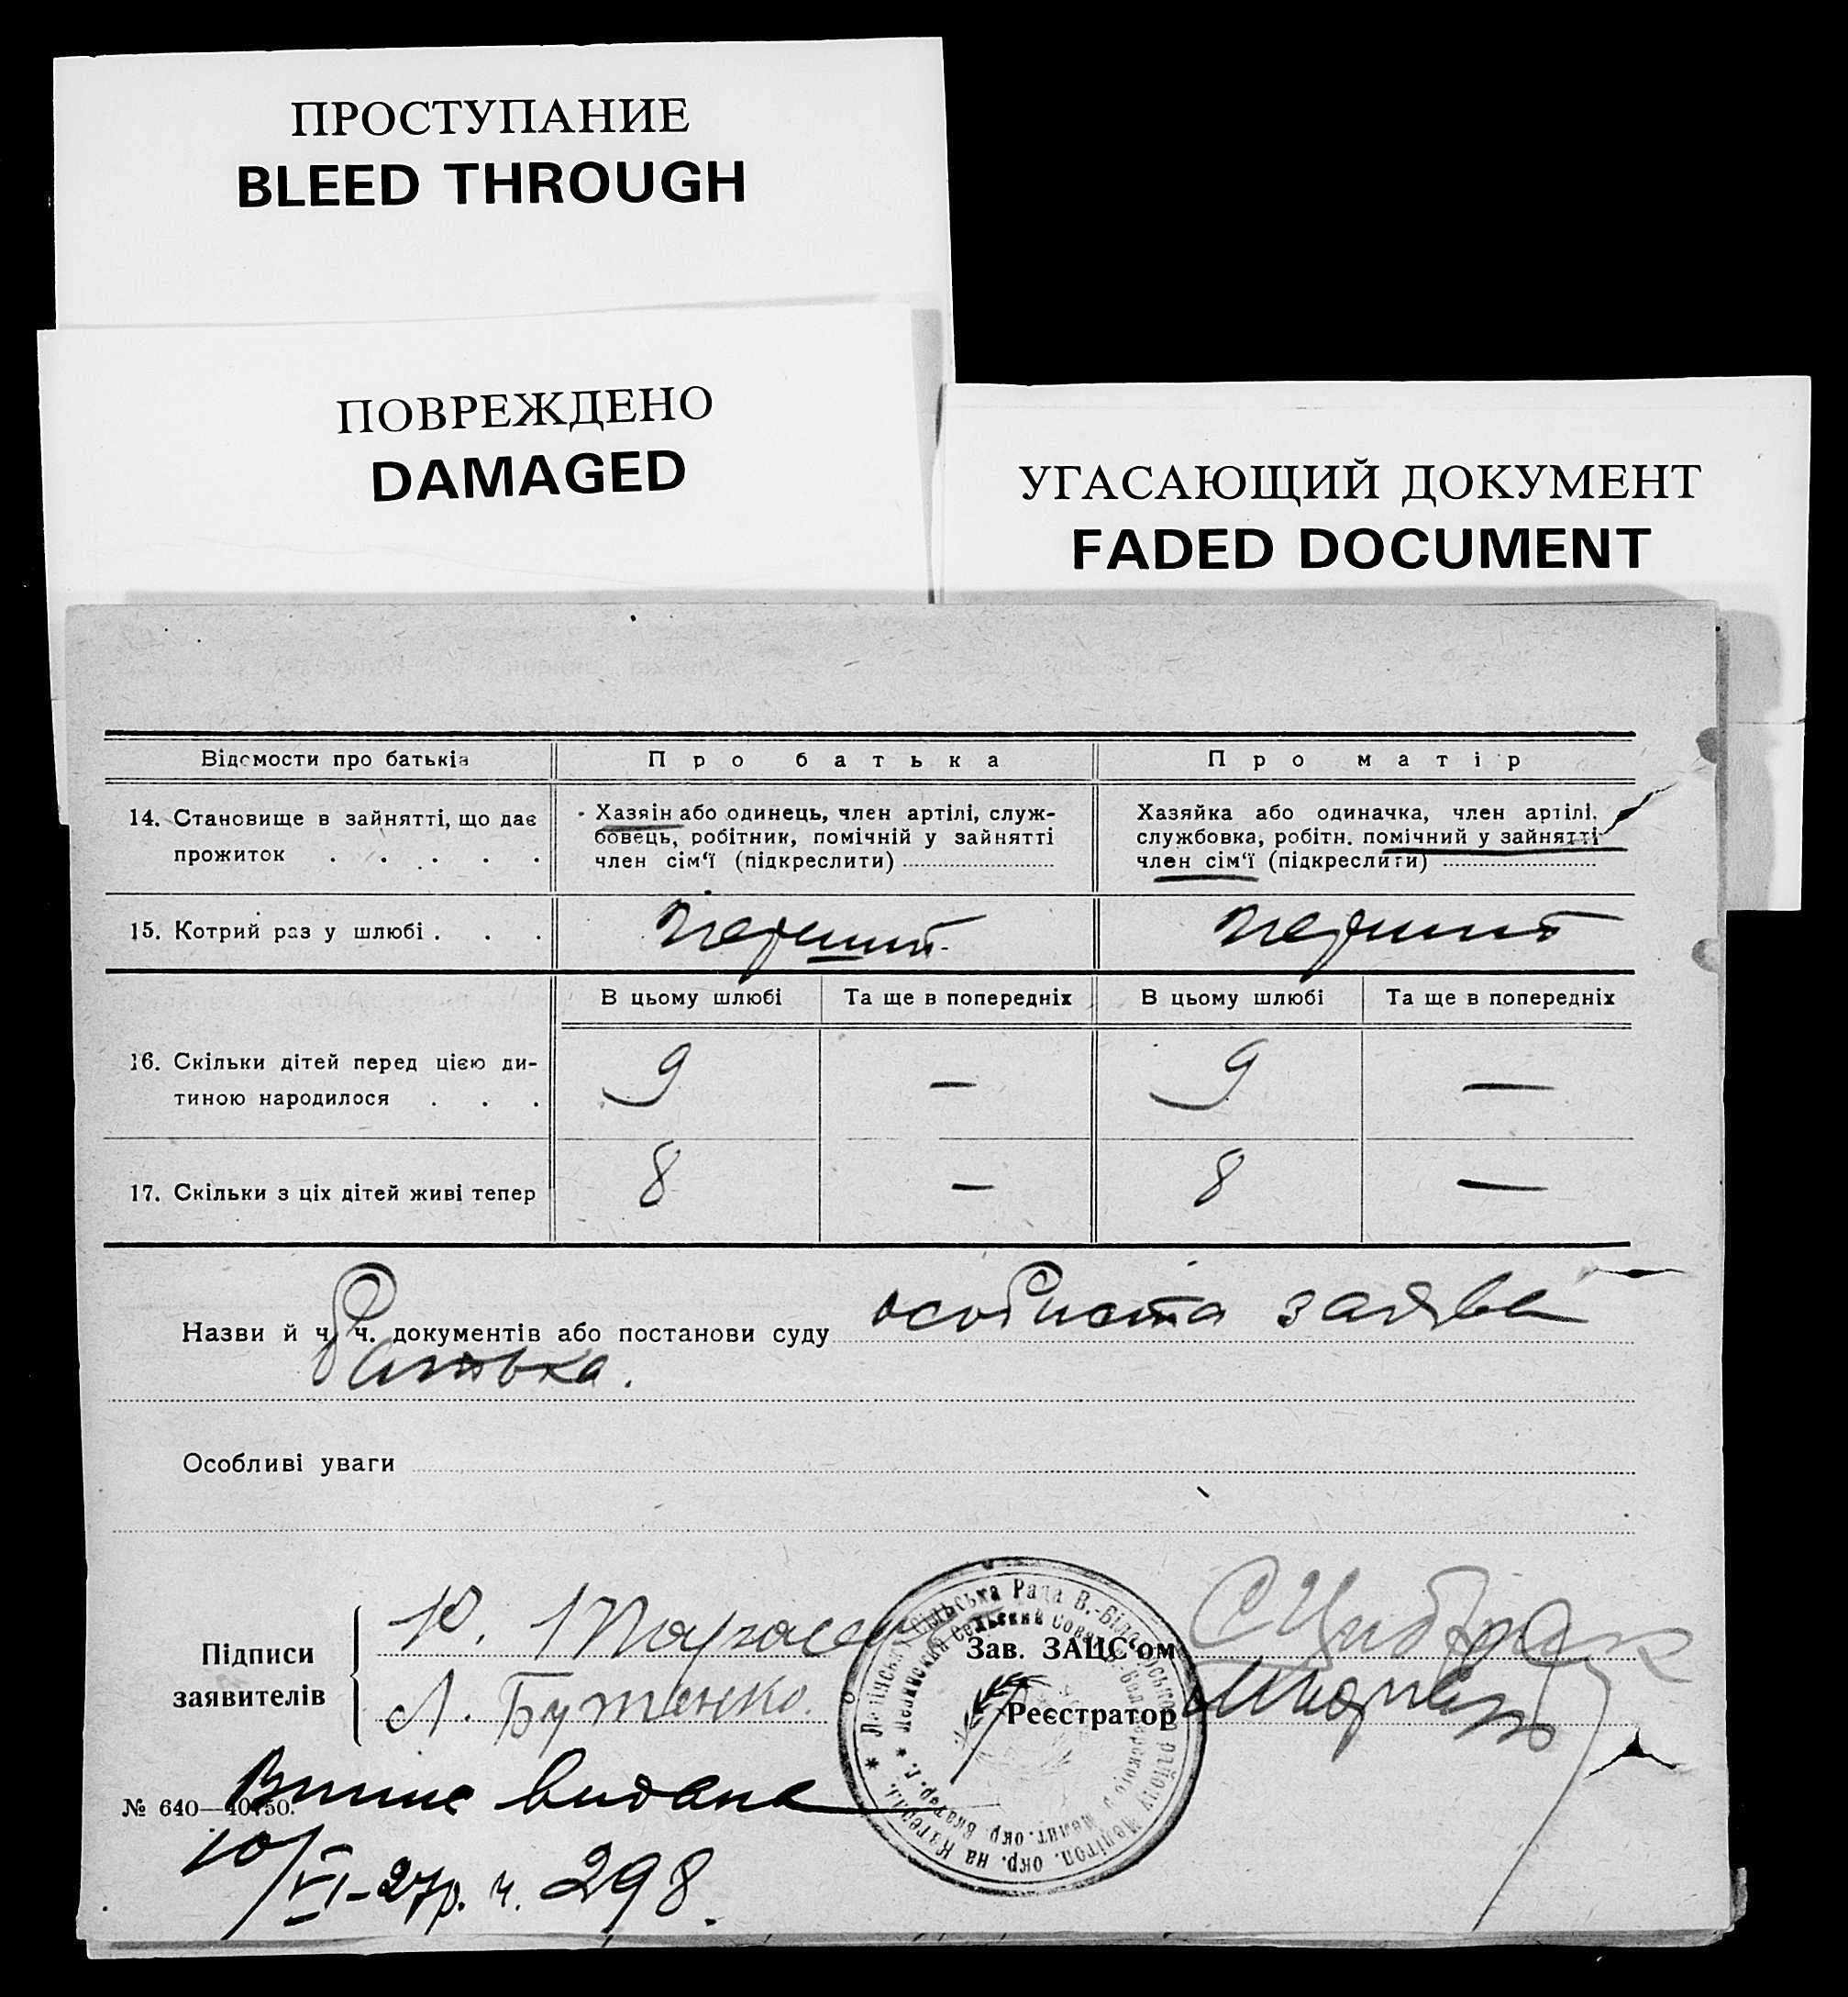 ПРОСТУПАНИЕ
BLEED THROUGH
ПОВРЕЖДЕНО
DAMAGED
УГАСАЮЩИЙ ДОКУМЕНТ
FADED DOCUMENT
Відомости про батьків
Про батька
Про матір
14. Становище в зайнятті, що дає
прожиток . . . . .
Хазяїн або одинець, член артілі, служ-
бовець, робітник, помічній у зайнятті
член сім‘ї (підкреслити)
Хазяйка або одиначка, член артілі,
службовка, робітн. помічний у зайнятті
член сім‘ї (підкреслити)
15. Котрий раз у шлюбі . . .
перший
перший
В цьому шлюбі
Та ще в попередніх
В цьому шлюбі
Та ще в попередніх
16. Скільки дітей перед цією ди-
тиною народилося . . .
9
—
9
—
17. Скільки з ціх дітей живі тепер
8
—
8
—
Назви й ч. ч. документів або постанови суду особиста заява
батька.
Особливі уваги
Підписи
заявителів
К.
Л. Бутенко.
Зав. ЗАЦС‘ом
Реєстратор
Сільська Рада В.-Біло
Мелит. окр.
Мелітоп. окр. на
№ 640—40750.
Випис видана
10/VI-27р. ч. 298.